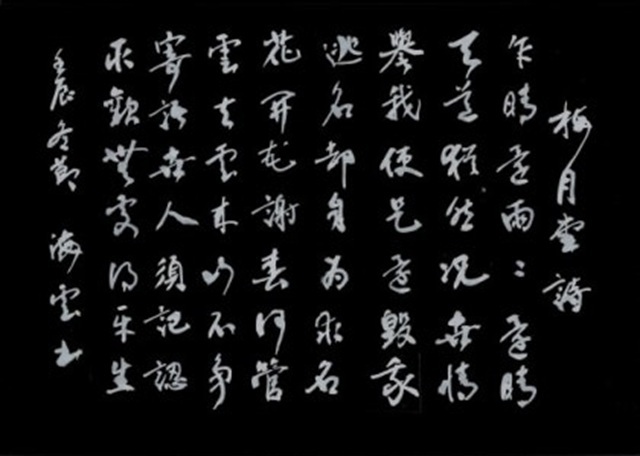 梅月堂詩
乍晴還雨〻還晴
天道猶然況世情
譽我便是還毀我
逃名却自為求名
花開花謝春何管
雲去雲來山不爭
寄語世人須記認
取歡無處得平生
壬辰冬節 海雲書